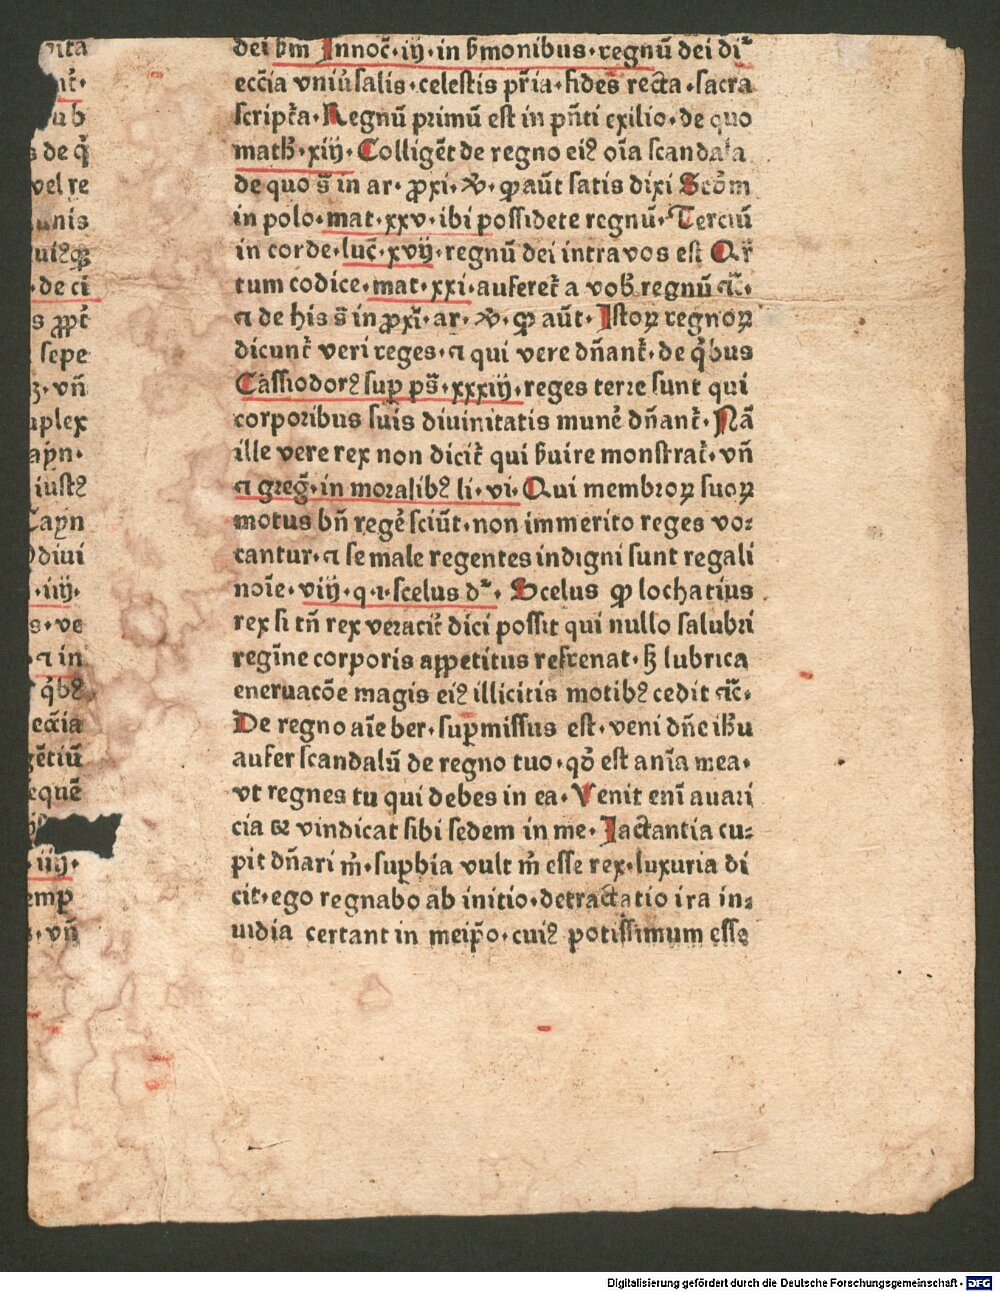 pita
ub
s de q̄
vel re
unis
. de ci
s ꝓpt̄
sepe
ꝫ · vn̄
uplex
apn ·
iustꝰ
Capn
Ddiui
· iiij ·
s · ve
· ⁊ in
q̇bꝰ
eccīa
gētiū
equē
· iiij ·
emp
· vn̄
dei ẜm Innoc̄ · iij · in ẜmonibus · regnū dei dr̄
eccīa vniūsalis · celestis pr̄ia · fides recta · sacra
script̄a · Regnū primū est in pn̄ti exilio · de quo
math̄ · xiij · Colliget̄ de regno eiꝰ oīa scandala
de quo s̄ in ar · ꝓxi · ꝟ · ꝙ aūt satis dixi Scōm
in polo · mat · xxv · ibi possidete regnū · Terciū
in corde · luc̄ · xvij · regnū dei intra vos est Qr̄
tum codice · mat · xxi · auferet̄ a vob̄ regnū ⁊c̄ ·
⁊ de his s̄ in ꝓxī · ar · ꝟ · ꝙ aūt · Istoꝝ regnoꝝ
dicunt̄ veri reges · ⁊ qui vere dn̄ant̄ · de q̇bus
Cassiodorꝰ suꝑ ps̄ · xxxiij · reges terre sunt qui
corporibus suis diuinitatis mune᷒ dn̄ant̄ · Nā
ille vere rex non dicit̄ qui ẜuire monstrat̄ · vn̄
⁊ greḡ · in moralibꝰ li · vi · Qui membroꝝ suoꝝ
motus bn̄ rege᷒ sciūt · non immerito reges vo⸗
cantur · ⁊ se male regentes indigni sunt regali
noīe · viij · q · i · scelus dr̄ · Scelus ꝙ lochatius
rex si tn̄ rex veracit̄ dici possit qui nullo salubri
regīne corporis appetitus refrenat · ẜꝫ lubrica
eneruacōe magis eiꝰ illicitis motibꝰ cedit ⁊c̄ ·
De regno aīe ber · suꝑ missus est · veni dn̄e ihū
aufer scandalū de regno tuo · qd̄ est anīa mea ·
vt regnes tu qui debes in ea · Venit enī auari
cia ⁊ vindicat sibi sedem in me · Iactantia cu⸗
pit dn̄ari m̄ · suꝑbia vult m̄ esse rex · luxuria di
cit · ego regnabo ab initio · detractatio ira in⸗
uidia certant in meip̄o · cuiꝰ potissimum esse
Digitalisierung gefördert durch die Deutsche Forschungsgemeinschaft - DFG